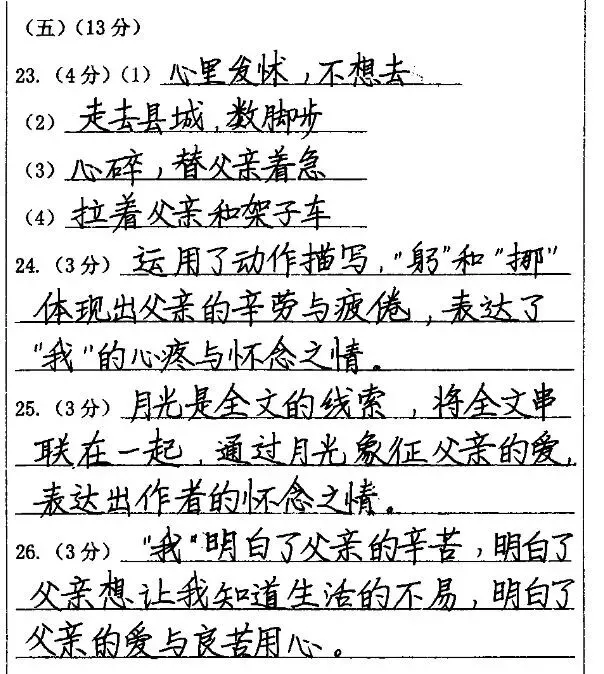 (五)(13分)
23.(4分)(1) 心里发怵,不想去
(2) 走去县城,数脚步
(3) 心碎,替父亲着急
(4) 拉着父亲和架子车
24.(3分) 运用了动作描写,"躬"和"挪"
体现出父亲的辛劳与疲倦,表达了
"我"的心疼与怀念之情。
25.(3分) 月光是全文的线索,将全文串
联在一起,通过月光象征父亲的爱,
表达出作者的怀念之情。
26.(3分) "我"明白了父亲的辛苦,明白了
父亲想让我知道生活的不易,明白了
父亲的爱与良苦用心。